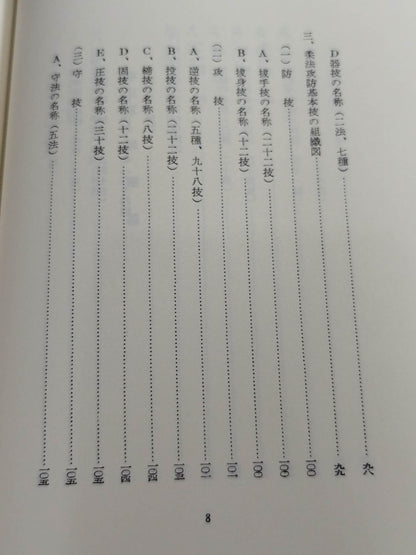 D 器技の名称(二法、七種)……九八
三、柔法攻防基本技の組織図……九九
(一)防 技……一〇〇
A、抜手技の名称(二十二技)……一〇〇
B、抜身技の名称(十二技)……一〇〇
(二)攻 技……一〇一
A、逆技の名称(五種、九十八技)……一〇一
B、投技の名称(二十二技)……一〇三
C、締技の名称(八技)……一〇四
D、固技の名称(十二技)……一〇四
E、圧技の名称(三十技)……一〇五
(三)守 技……一〇五
A、守法の名称(五法)……一〇五
8